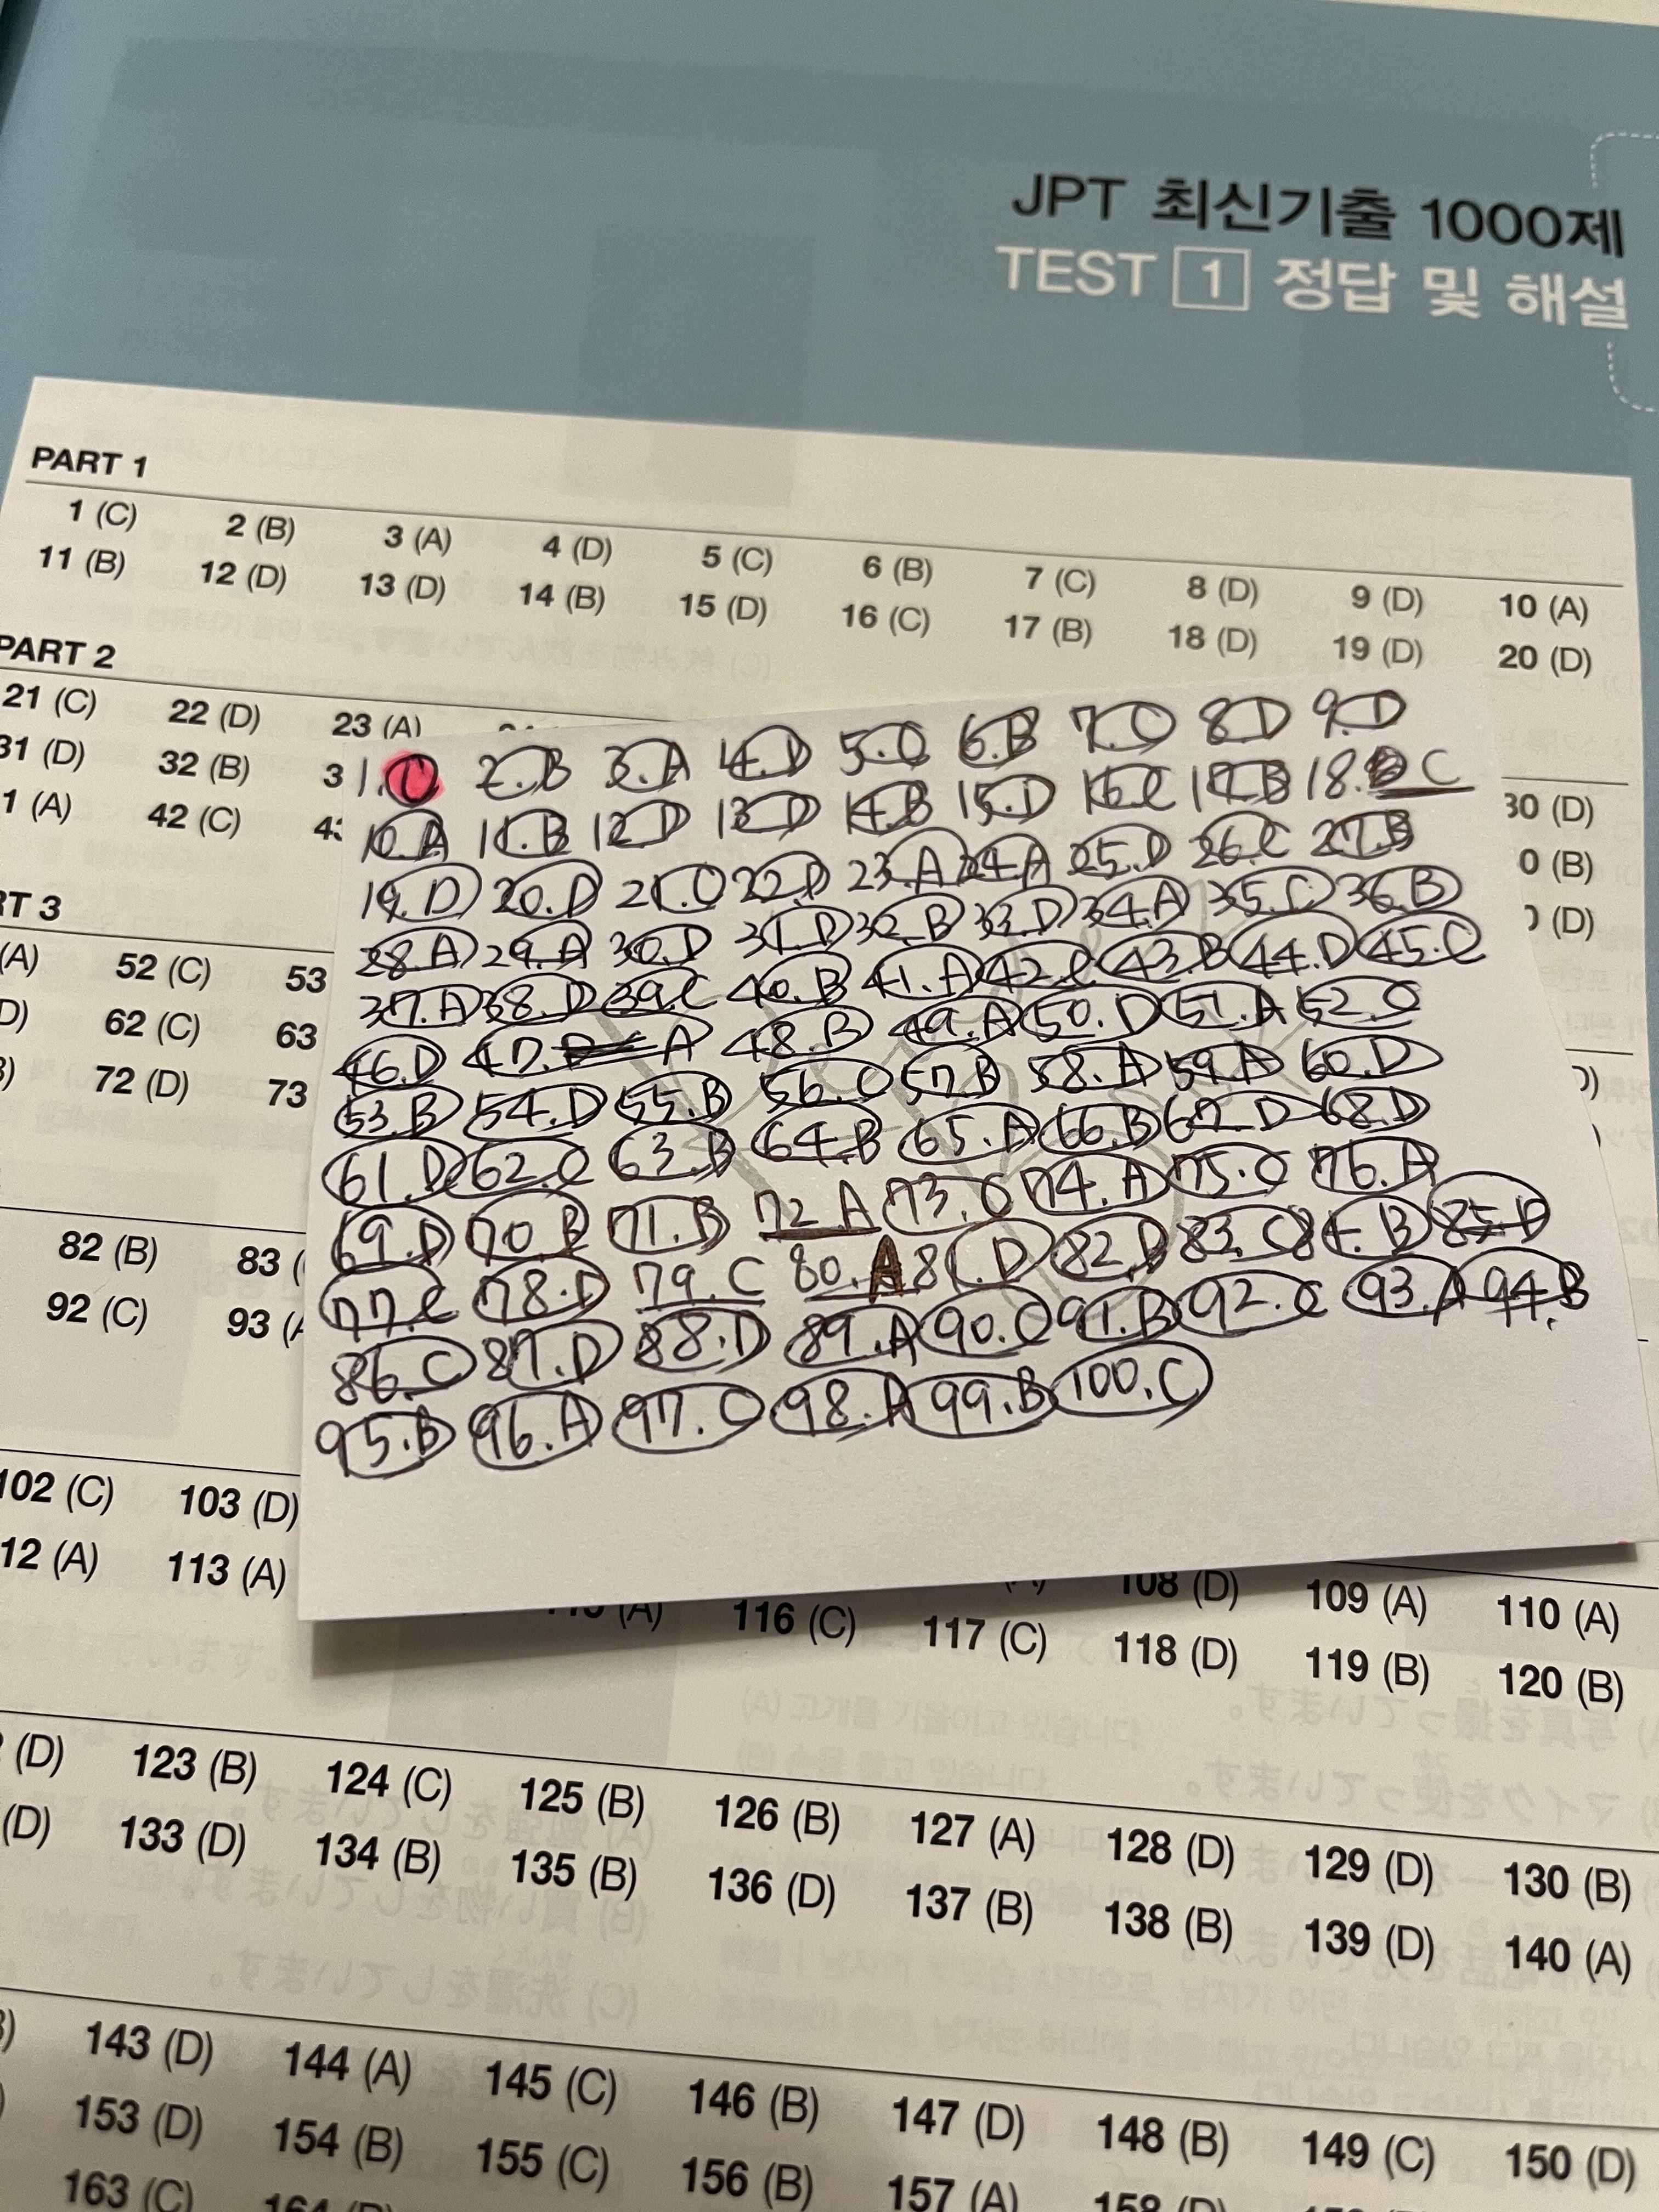 JPT 최신기출 1000제
TEST 1 정답 및 해설
PART 1
1 (C) 2 (B) 3 (A) 4 (D) 5 (C) 6 (B) 7 (C) 8 (D) 9 (D) 10 (A)
11 (B) 12 (D) 13 (D) 14 (B) 15 (D) 16 (C) 17 (B) 18 (D) 19 (D) 20 (D)
PART 2
21 (C) 22 (D) 23 (A)
31 (D) 32 (B) 3 30 (D)
1 (A) 42 (C) 43 0 (B)
RT 3 0 (D)
(A) 52 (C) 53
D) 62 (C) 63
72 (D) 73
82 (B) 83
92 (C) 93 (A
1.C 2.B 3.A 4.D 5.C 6.B 7.C 8.D 9.D
10.A 11.B 12.D 13.D 14.B 15.D 16.C 17.B 18. C
19.D 20.D 21.C 22.D 23.A 24.A 25.D 26.C 27.B
28.A 29.A 30.D 31.D 32.B 33.D 34.A 35.C 36.B
37.A 38.D 39.C 40.B 41.A 42.C 43.B 44.D 45.C
46.D 47. A 48.B 49.A 50.D 51.A 52.C
53.B 54.D 55.B 56.C 57.B 58.A 59.A 60.D
61.D 62.C 63.B 64.B 65.A 66.B 67.D 68.D
69.D 70.B 71.B 72 A 73.C 74.A 75.C 76.A
77.C 78.D 79.C 80.A 81.D 82.B 83.C 84.B 85.D
86.C 87.D 88.D 89.A 90.C 91.B 92.C 93.A 94.B
95.B 96.A 97.C 98.A 99.B 100.C
102 (C) 103 (D) 108 (D) 109 (A) 110 (A)
12 (A) 113 (A) (A) 116 (C) 117 (C) 118 (D) 119 (B) 120 (B)
(D) 123 (B) 124 (C) 125 (B) 126 (B) 127 (A) 128 (D) 129 (D) 130 (B)
(D) 133 (D) 134 (B) 135 (B) 136 (D) 137 (B) 138 (B) 139 (D) 140 (A)
143 (D) 144 (A) 145 (C) 146 (B) 147 (D) 148 (B) 149 (C) 150 (D)
153 (D) 154 (B) 155 (C) 156 (B) 157 (A) 158 (D)
163 (C)